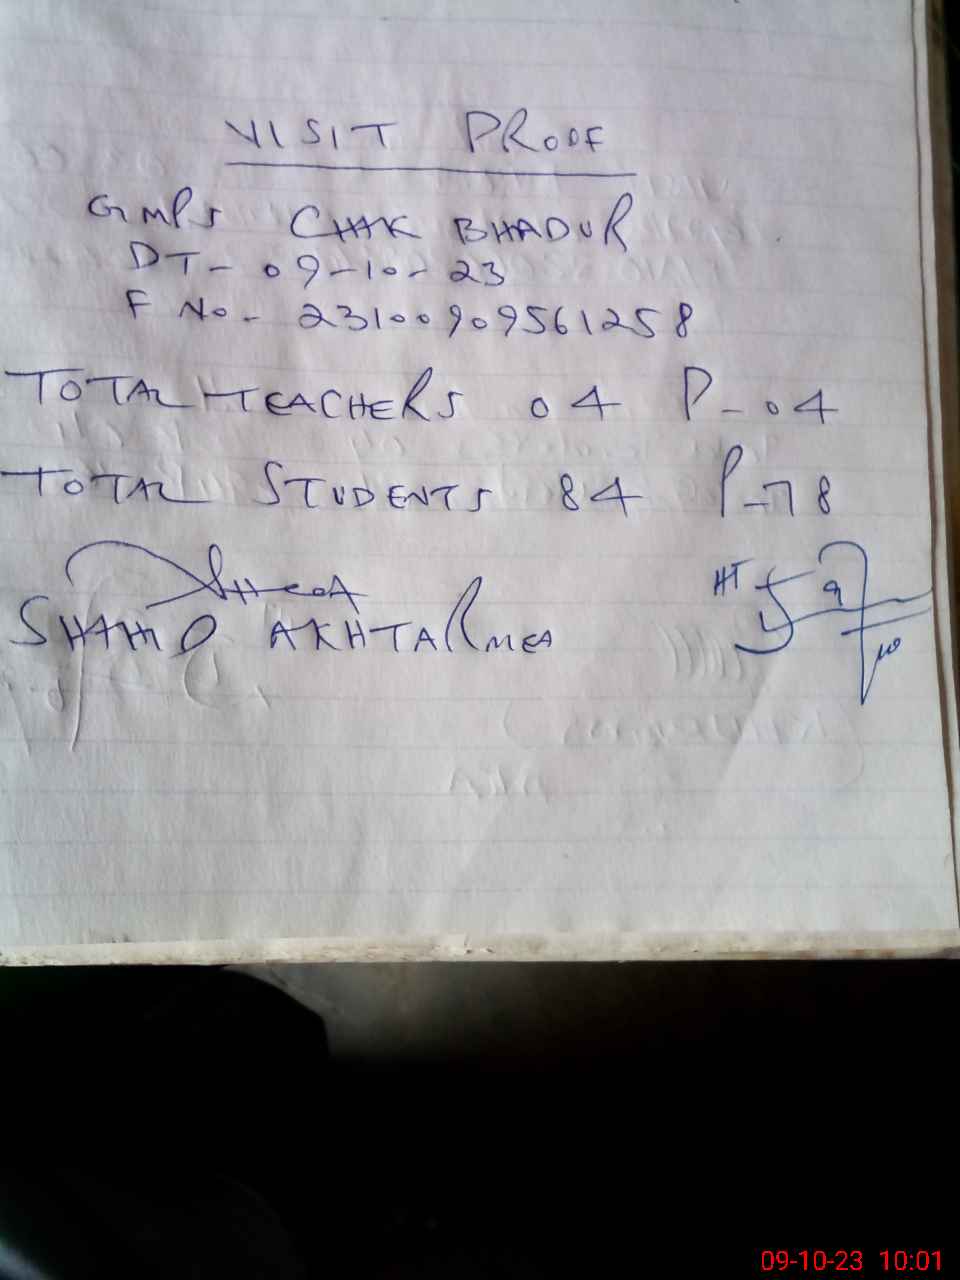 VISIT PROOF
GMPS CHAK BHADUR
DT - 09-10-23
F No - 23100909561258
TOTAL TEACHERS 04 P-04
TOTAL STUDENTS 84 P-78
HT
AKHTAR MEA
09-10-23 10:01